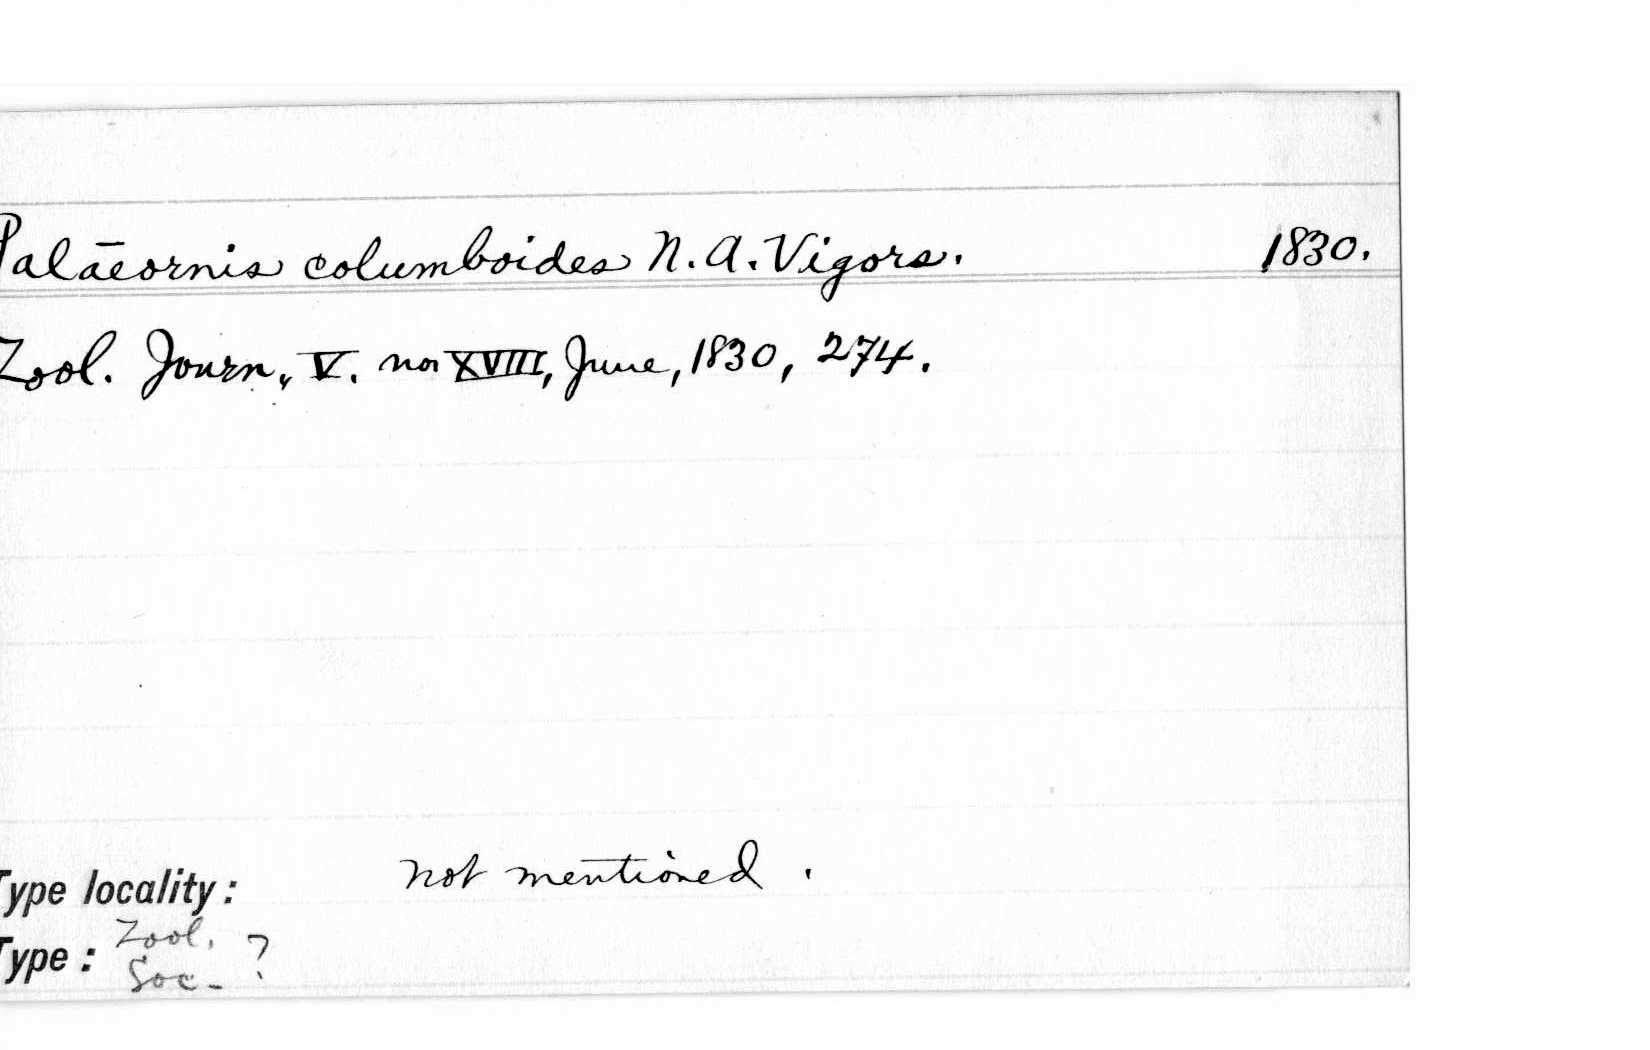 Palāeornis columboides N. A. Vigors. 1830.
Zool. Journ., V. no XVIII, June, 1830, 274.
Type locality: not mentioned.
Type: Zool. Soc. ?